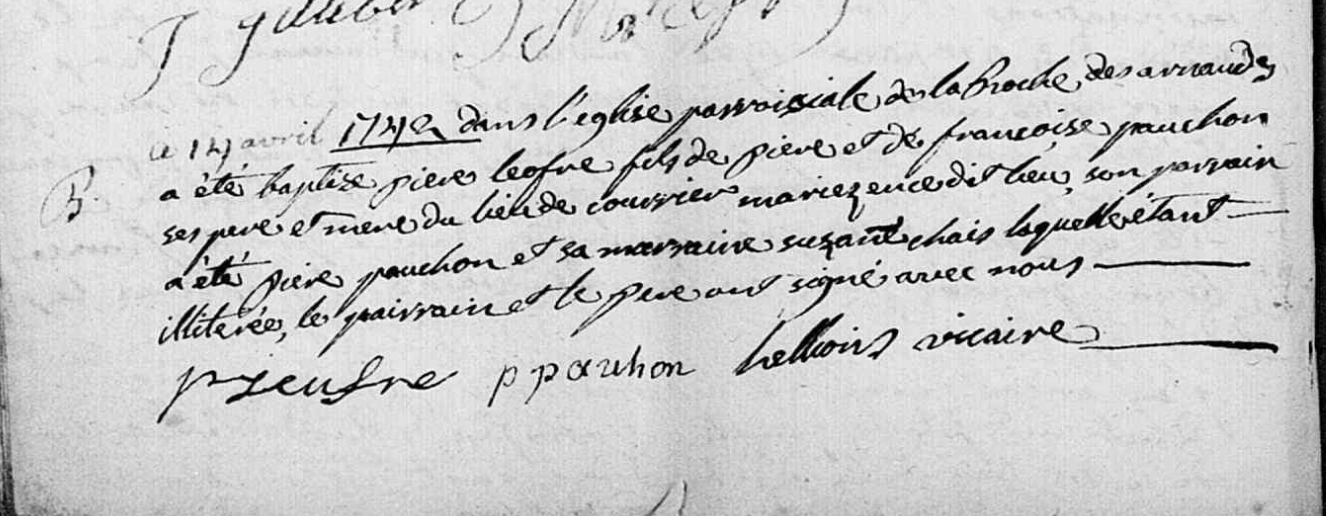 ce 14 avril 1742 dans l'eglise parroissiale de la Roche des arnauds
B. a été baptize piere leofre fils de piere et de françoise pauchon
ses pere et mere du lieu de courrier mariez en ce dit lieu, son parrain
a été piere pauchon et sa marraine suzane chais laquelle étant
illiterée, le pairrain et le pere ont signé avec nous
p pauchon vicaire